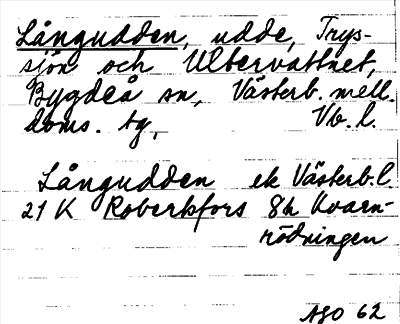 Långudden, udde, Trys-
sjön och Ultervattnet,
Bygdeå sn, Västerb. mell.
doms. tg, Vb. l.
Långudden ek Västerb. l.
21 K Robertsfors 8h Kvarn-
rödningen
ASO 62